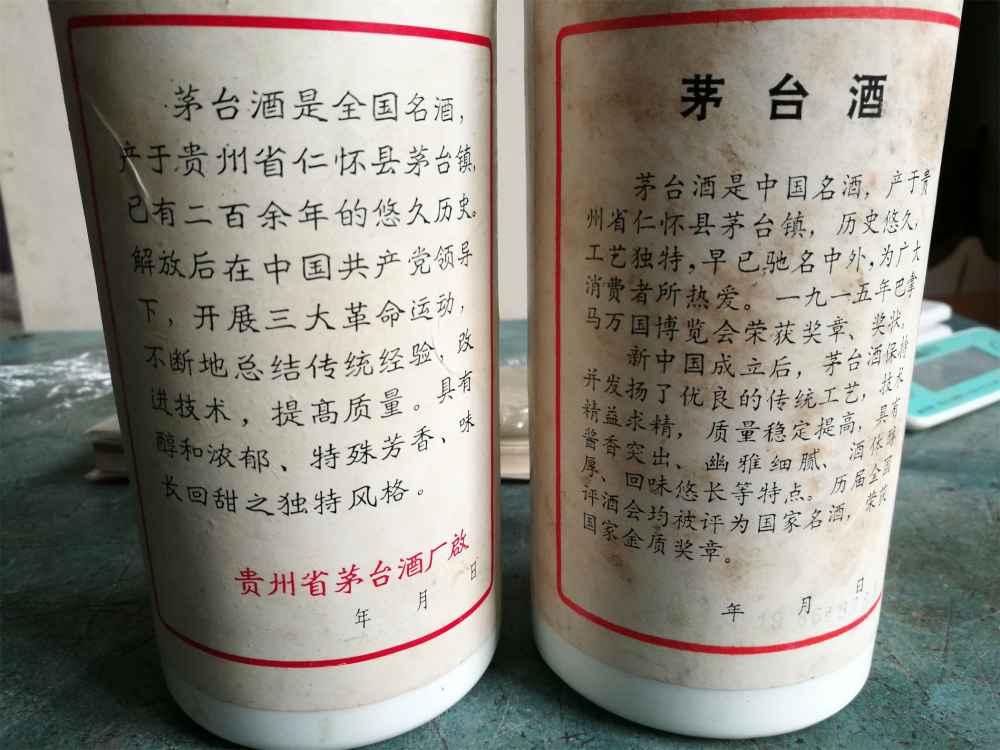 茅台酒是全国名酒，
产于贵州省仁怀县茅台镇，
已有二百余年的悠久历史。
解放后在中国共产党领导
下，开展三大革命运动，
不断地总结传统经验，改
进技术，提高质量。具有
醇和浓郁、特殊芳香、味
长回甜之独特风格。
贵州省茅台酒厂啟
年 月 日
茅台酒
茅台酒是中国名酒，产于贵
州省仁怀县茅台镇，历史悠久，
工艺独特，早已驰名中外，为广大
消费者所热爱。一九一五年巴拿
马万国博览会荣获奖章、奖状，
新中国成立后，茅台酒保持
并发扬了优良的传统工艺，技术
精益求精，质量稳定提高，具有
酱香突出、幽雅细腻、酒体醇
厚、回味悠长等特点。历届全国
评酒会均被评为国家名酒，荣获
国家金质奖章。
年 月 日